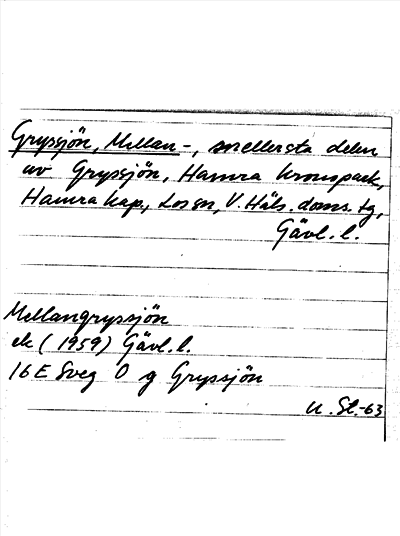 Grypsjön, Mellan-, mellersta delen
av Grypsjön, Hamra kronopark,
Hamra kap., Loson, V. Häls. doms. tg,
Gävl. l.
Mellangrypsjön
ek (1959) Gävl. l.
16 E Sveg O g Grypsjön
U. St.-63